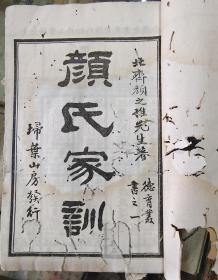 北齊顏之推先生著
德育叢
書之一
顏氏家訓
掃葉山房發行